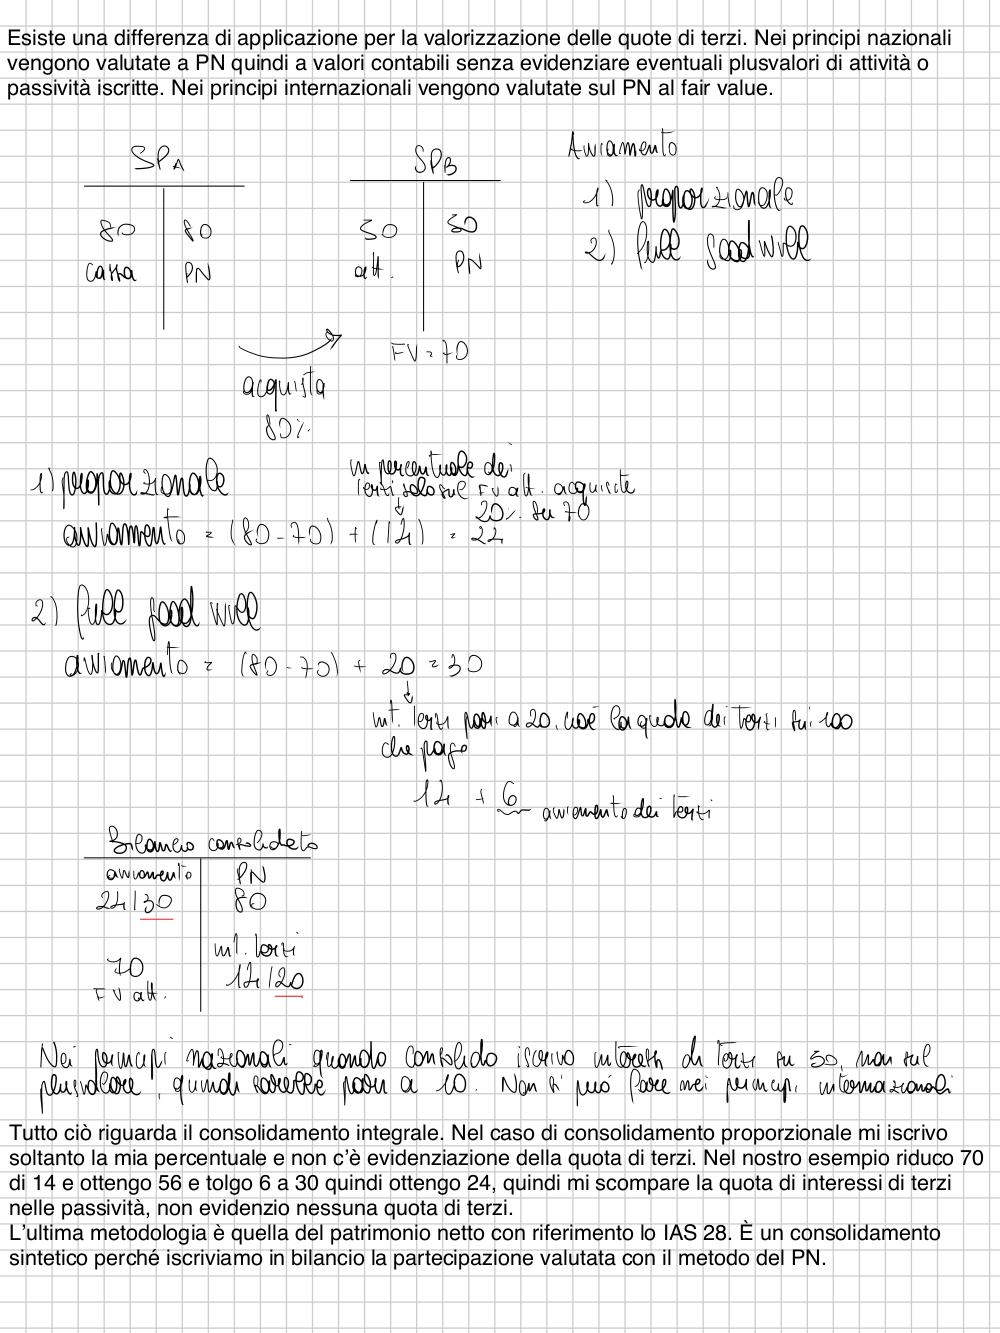 Esiste una differenza di applicazione per la valorizzazione delle quote di terzi. Nei principi nazionali
vengono valutate a PN quindi a valori contabili senza evidenziare eventuali plusvalori di attività o
passività iscritte. Nei principi internazionali vengono valutate sul PN al fair value.
SPA
SPB
Avviamento
1) proporzionale
2) full goodwill
80
80
50
50
cassa
PN
att.
PN
FV = 70
acquista
80%
1) proporzionale
in percentuale dei
terzi solo sul FV att. acquisite
20% su 70
avviamento = (80-70) + (14) = 24
2) full good will
avviamento = (80-70) + 20 = 30
int. terzi pari a 20, cioè la quota dei terzi sui 100
che pago
14 + 6 avviamento dei terzi
Bilancio consolidato
avviamento
PN
24/30
80
int. terzi
70
14/20
FV att.
Nei principi nazionali quando consolido iscrivo interessi di terzi su 50, non sul
plusvalore, quindi sarebbe pari a 10. Non si può fare nei principi internazionali
Tutto ciò riguarda il consolidamento integrale. Nel caso di consolidamento proporzionale mi iscrivo
soltanto la mia percentuale e non c'è evidenziazione della quota di terzi. Nel nostro esempio riduco 70
di 14 e ottengo 56 e tolgo 6 a 30 quindi ottengo 24, quindi mi scompare la quota di interessi di terzi
nelle passività, non evidenzio nessuna quota di terzi.
L'ultima metodologia è quella del patrimonio netto con riferimento lo IAS 28. È un consolidamento
sintetico perché iscriviamo in bilancio la partecipazione valutata con il metodo del PN.